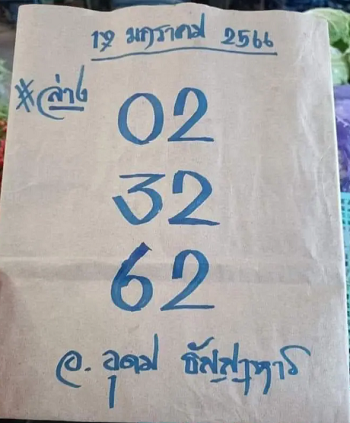 17 มกราคม 2566
#ล่าง
02
32
62
อ. อุดม ธัสสาหาร